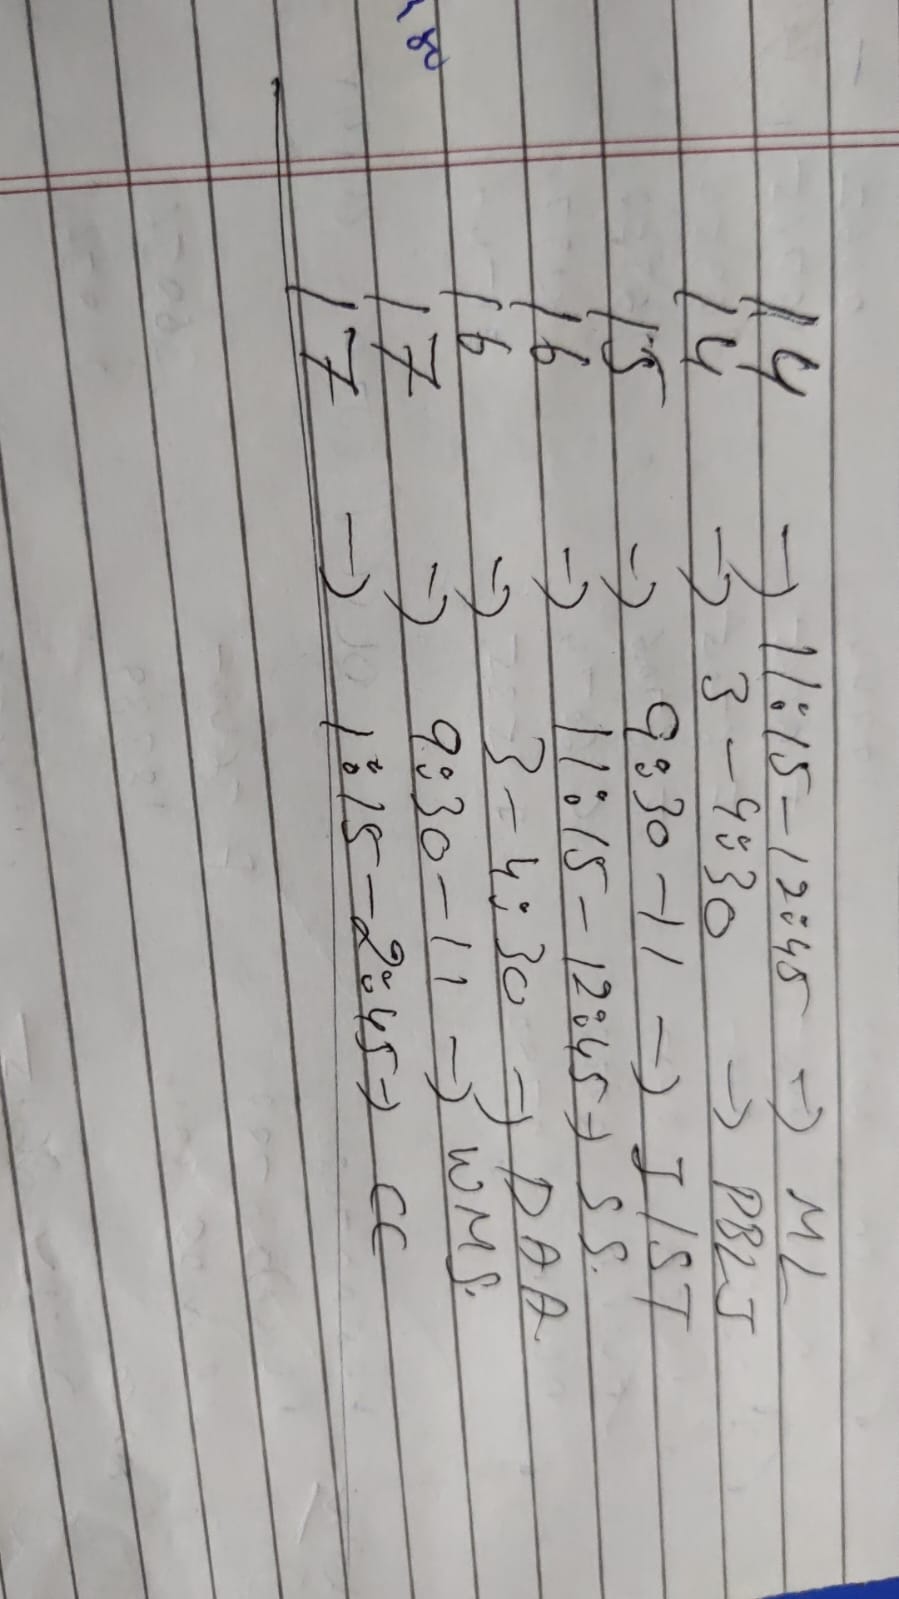 14 → 11:15-12:45 → ML
14 → 3-4:30 → PBLJ
15 → 9:30-11 → J/ST
16 → 11:15-12:45 → SS.
16 → 3-4:30 → DAA
17 → 9:30-11 → WMS.
17 → 1:15-2:45 → CC